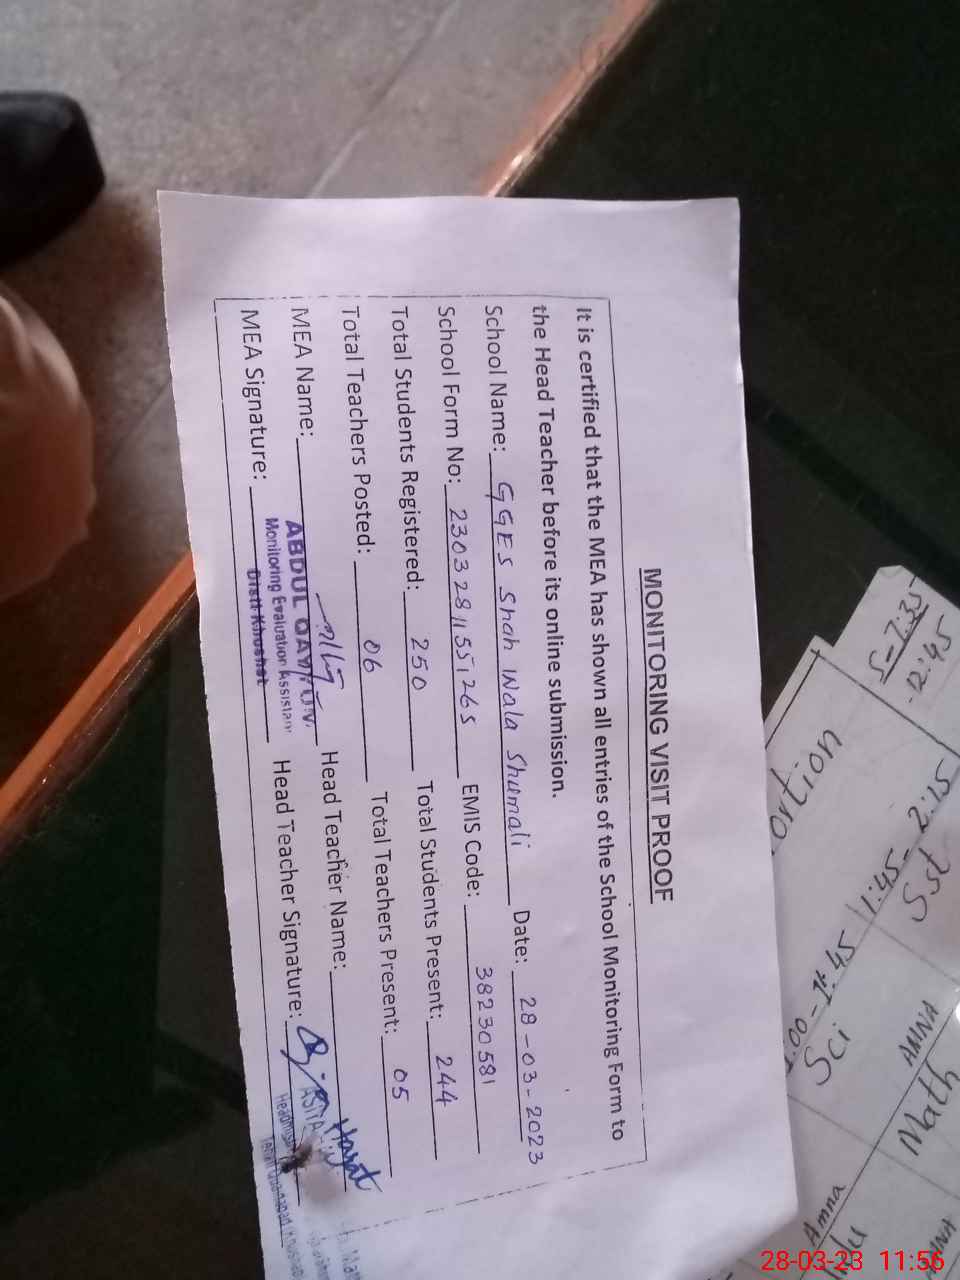 MONITORING VISIT PROOF
It is certified that the MEA has shown all entries of the School Monitoring Form to
the Head Teacher before its online submission.
School Name: GGES Shah Wala Shumali Date: 28-03-2023
School Form No: 23032811551265 EMIS Code: 38230581
Total Students Registered: 250 Total Students Present: 244
Total Teachers Posted: 06 Total Teachers Present: 05
MEA Name: Head Teacher Name:
MEA Signature: Head Teacher Signature:
ABDUL QAYYUM
Monitoring Evaluation Assistant
Distt Khushab
ASIYA
S-7:35
12:45
ortion
1:45-2:15
Sst
1:45
Sci
AMNA
Math
Amna
28-03-23 11:56